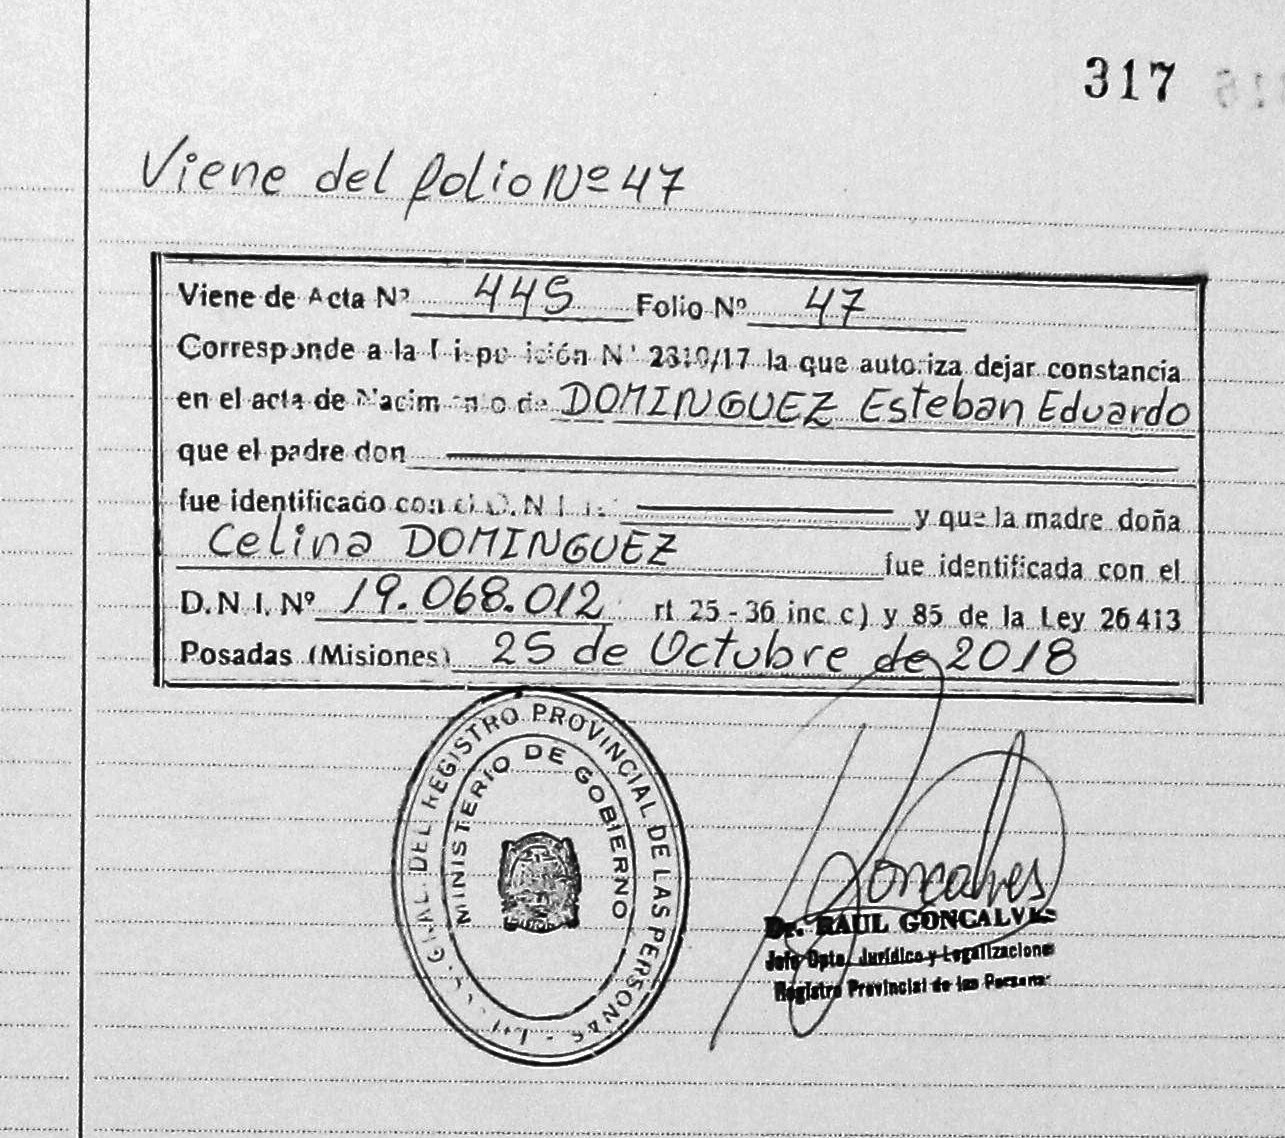 317
Viene del folio Nº 47
Viene de Acta Nº 445 Folio Nº 47
Corresponde a la Disposición Nº 2310/17 la que autoriza dejar constancia
en el acta de Nacimiento de DOMINGUEZ Esteban Eduardo
que el padre don
fue identificado con el D.N.I. Nº y que la madre doña
Celina DOMINGUEZ fue identificada con el
D.N.I. Nº 19.068.012 rt 25-36 inc. c) y 85 de la Ley 26413
Posadas (Misiones) 25 de Octubre de 2018
GRAL. DEL REGISTRO PROVINCIAL DE LAS PERSONAS
MINISTERIO DE GOBIERNO
Goncalves
Dr. RAUL GONCALVES
Jefe Dpto. Jurídico y Legalizaciones
Registro Provincial de las Personas